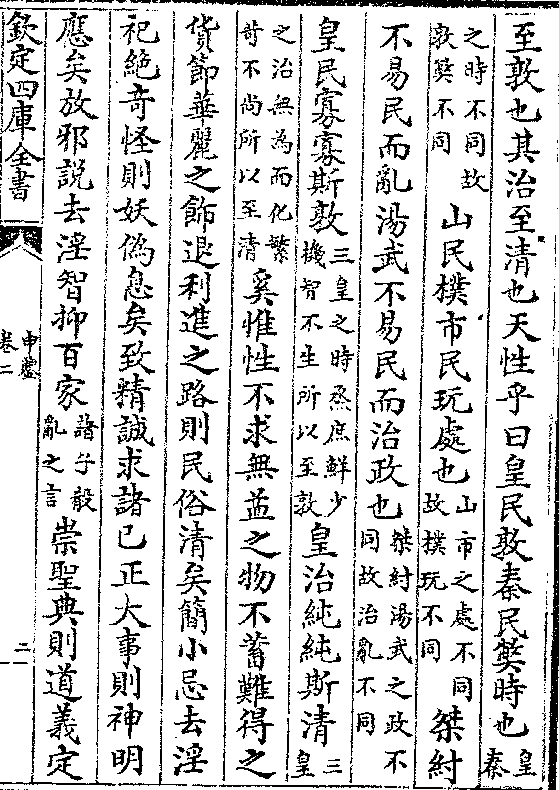 至敦也其治至清也天性乎曰皇民敦秦民獘時也皇秦
之時不同故敦獘不同山民樸市民玩處也山市之處不同故樸玩不同桀紂
不易民而亂湯武不易民而治政也桀紂湯武之政不同故治亂不同
皇民寡寡斯敦三皇之時烝庶鮮少機智不生所以至敦皇治純純斯清三皇
之治無為而化繁苛不尚所以至清奚惟性不求無益之物不蓄難得之
貨節華麗之飾退利進之路則民俗清矣簡小忌去淫
祀絶奇怪則妖偽息矣致精誠求諸己正大事則神明
應矣放邪說去淫智抑百家諸子殽亂之言崇聖典則道義定
欽定四庫全書
申鑒
卷二
二